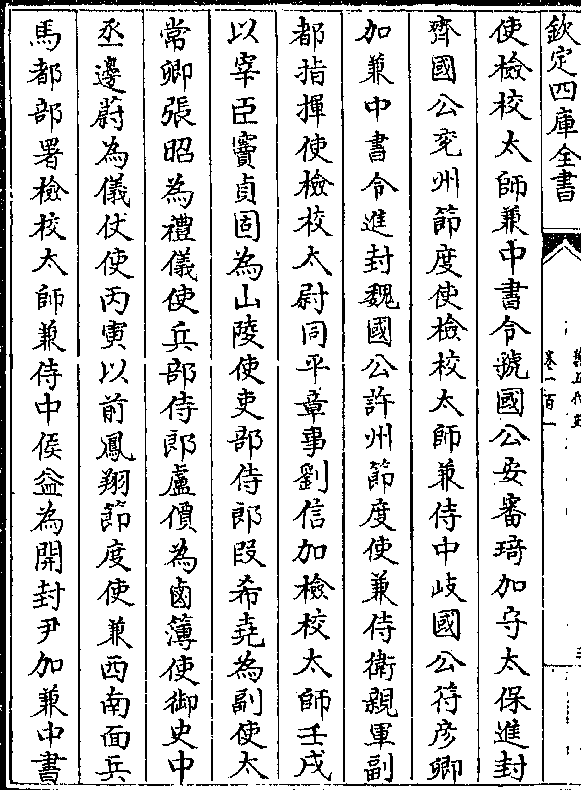 欽定四庫全書
卷一百一
使檢校太師兼中書令虢國公安審琦加守太保進封
齊國公兖州節度使檢校太師兼侍中岐國公符彦卿
加兼中書令進封魏國公許州節度使兼侍衛親軍副
都指揮使檢校太尉同平章事劉信加檢校太師壬戌
以宰臣竇貞固為山陵使吏部侍郎段希堯為副使太
常卿張昭為禮儀使兵部侍郎盧價為鹵簿使御史中
丞邊蔚為儀仗使丙寅以前鳳翔節度使兼西南面兵
馬都部署檢校太師兼侍中侯益為開封尹加兼中書